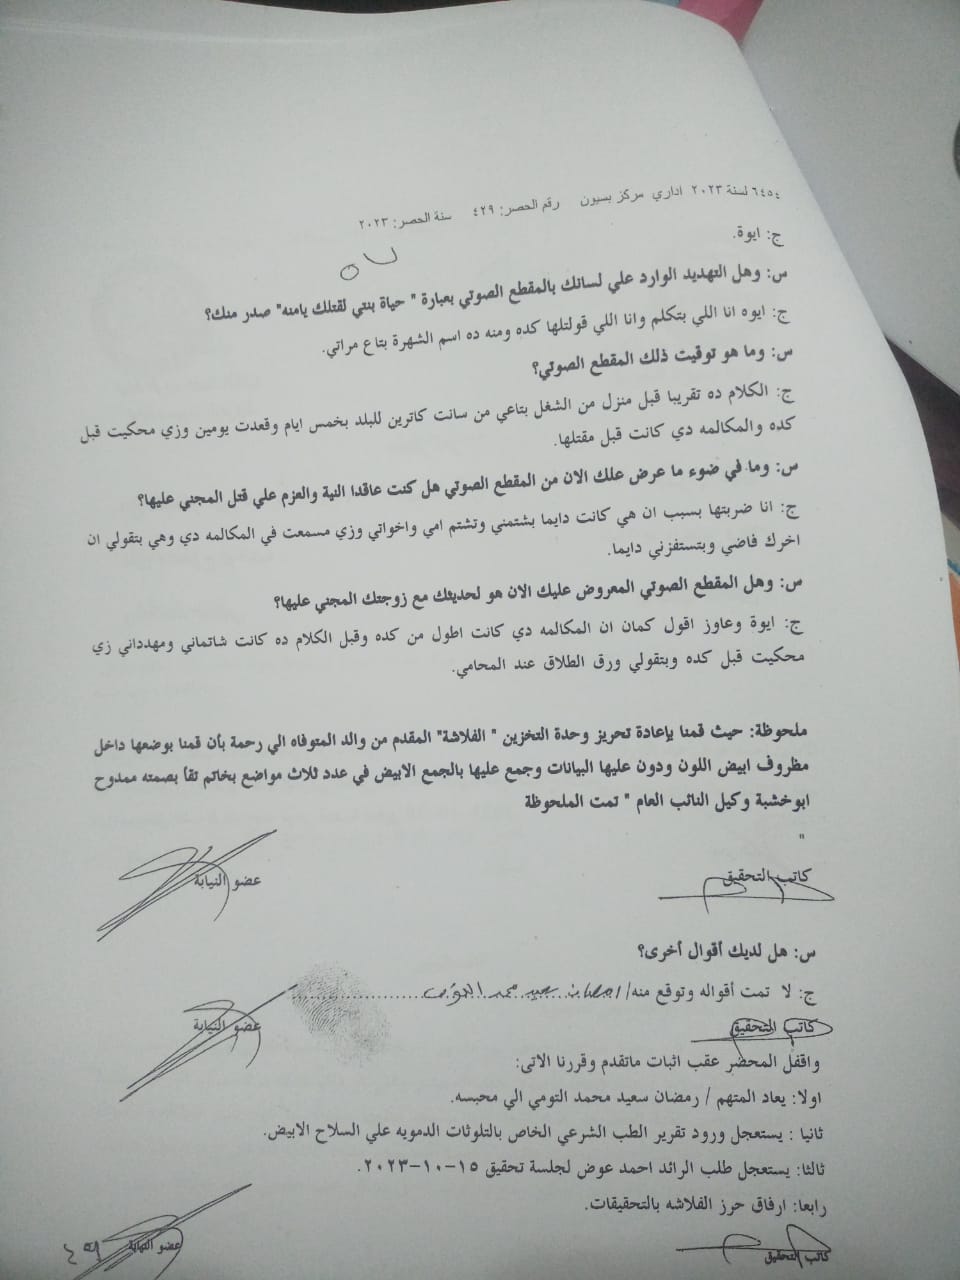 ٦٤٥٤ لسنة ٢٠٢٣ اداري مركز بسيون رقم الحصر: ٤٢٩ سنة الحصر: ٢٠٢٣
ج: ايوة.
س: وهل التهديد الوارد علي لسانك بالمقطع الصوتي بعبارة " حياة بنتي لقتلك يامنه" صدر منك؟
ج: ايوه انا اللي بتكلم وانا اللي قولتلها كده ومنه ده اسم الشهرة بتاع مراتي.
س: وما هو توقيت ذلك المقطع الصوتي؟
ج: الكلام ده تقريبا قبل منزل من الشغل بتاعي من سانت كاترين للبلد بخمس ايام وقعدت يومين وزي محكيت قبل
كده والمكالمه دي كانت قبل مقتلها.
س: وما في ضوء ما عرض علك الان من المقطع الصوتي هل كنت عاقدا النية والعزم علي قتل المجني عليها؟
ج: انا ضربتها بسبب ان هي كانت دايما بشتمني وتشتم امي واخواتي وزي مسمعت في المكالمه دي وهي بتقولي ان
اخرك فاضي وبتستفزني دايما.
س: وهل المقطع الصوتي المعروض عليك الان هو لحديثك مع زوجتك المجني عليها؟
ج: ايوة وعاوز اقول كمان ان المكالمه دي كانت اطول من كده وقبل الكلام ده كانت شاتماني ومهدداني زي
محكيت قبل كده وبتقولي ورق الطلاق عند المحامي.
ملحوظة: حيث قمنا بإعادة تحريز وحدة التخزين " الفلاشة" المقدم من والد المتوفاه الي رحمة بأن قمنا بوضعها داخل
مظروف ابيض اللون ودون عليها البيانات وجمع عليها بالجمع الابيض في عدد ثلاث مواضع بخاتم تقأ بصمته ممدوح
ابوخشبة وكيل النائب العام " تمت الملحوظة
"
كاتب التحقيق عضو النيابة
س: هل لديك أقوال أخرى؟
ج: لا تمت أقواله وتوقع منه/ سعيد محمد
كاتب التحقيق عضو النيابة
واقفل المحضر عقب اثبات ماتقدم وقررنا الاتى:
اولا: يعاد المتهم / رمضان سعيد محمد التومي الي محبسه.
ثانيا : يستعجل ورود تقرير الطب الشرعي الخاص بالتلوثات الدمويه علي السلاح الابيض.
ثالثا: يستعجل طلب الرائد احمد عوض لجلسة تحقيق ١٥-١٠-٢٠٢٣.
رابعا: ارفاق حرز الفلاشه بالتحقيقات.
كاتب التحقيق عضو النيابة